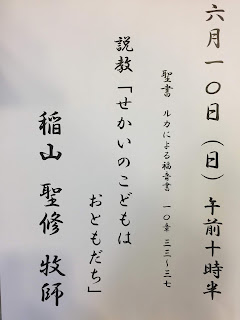 六月一〇日（日）午前十時半
聖書 ルカによる福音書 一〇章 三三～三七
説教「せかいのこどもは
おともだち」
稲山 聖修 牧師